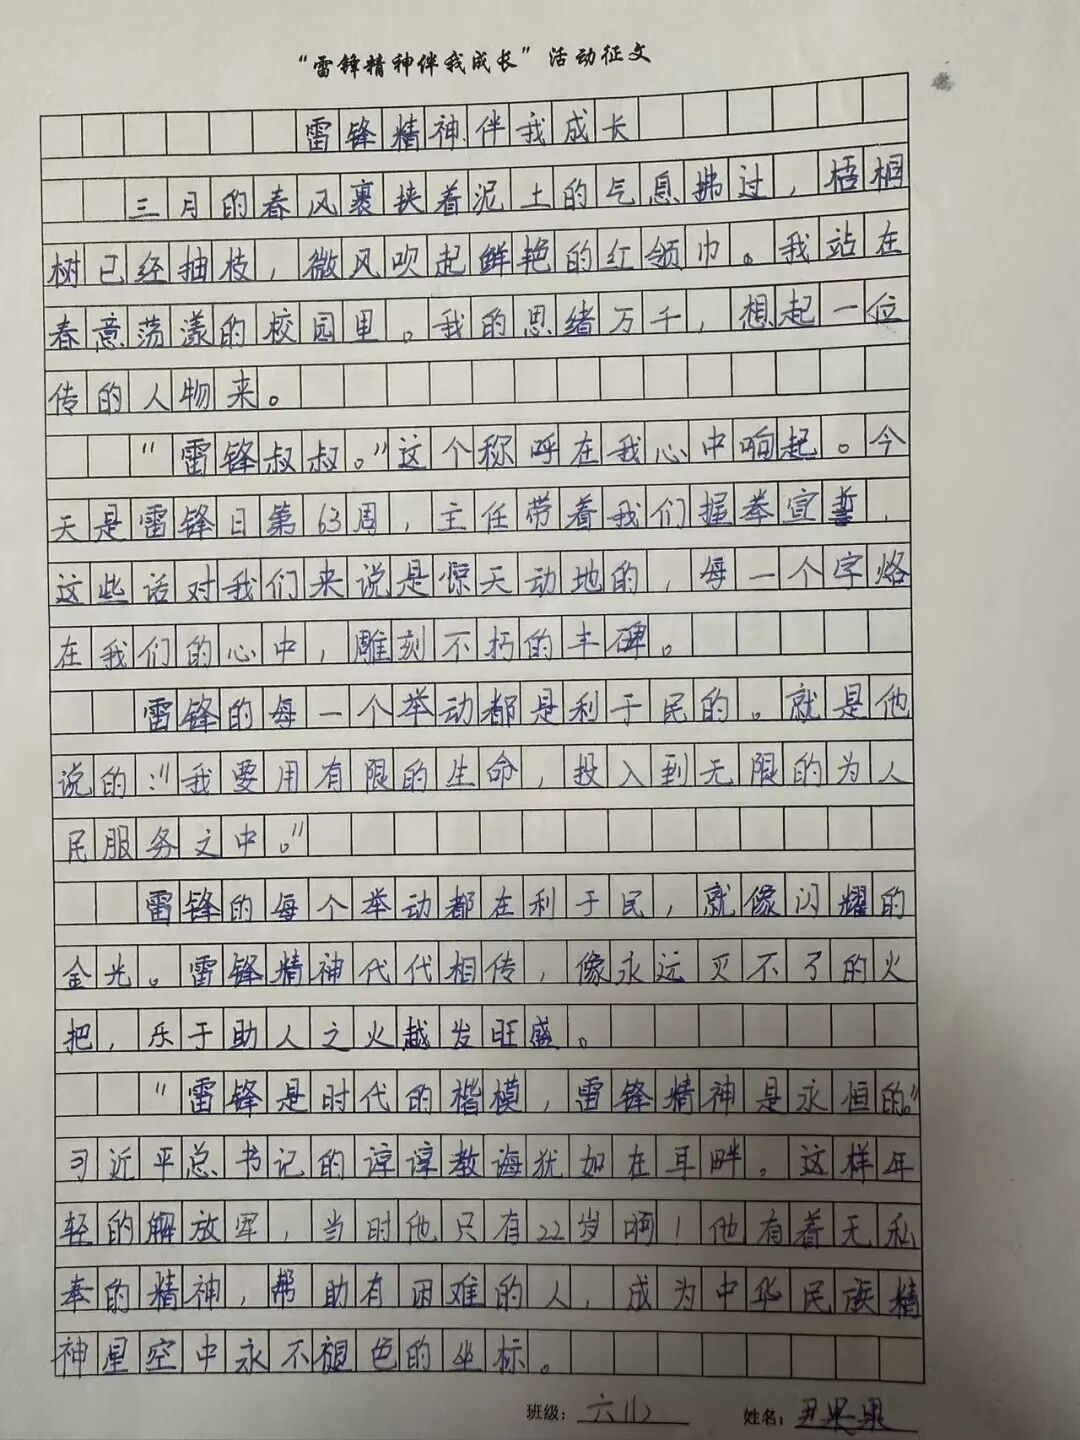 “雷锋精神伴我成长”活动征文
雷锋精神伴我成长
三月的春风裹挟着泥土的气息拂过，梧桐
树已经抽枝，微风吹起鲜艳的红领巾。我站在
春意荡漾的校园里。我的思绪万千，想起一位
传的人物来。
“雷锋叔叔。”这个称呼在我心中响起。今
天是雷锋日第63周，主任带着我们握拳宣誓，
这些话对我们来说是惊天动地的，每一个字烙
在我们的心中，雕刻不朽的丰碑。
雷锋的每一个举动都是利于民的。就是他
说的：“我要用有限的生命，投入到无限的为人
民服务之中。”
雷锋的每个举动都在利于民，就像闪耀的
金光。雷锋精神代代相传，像永远灭不了的火
把，乐于助人之火越发旺盛。
“雷锋是时代的楷模，雷锋精神是永恒的。”
习近平总书记的谆谆教诲犹如在耳畔。这样年
轻的解放军，当时他只有22岁啊！他有着无私
奉的精神，帮助有困难的人，成为中华民族精
神星空中永不褪色的坐标。
班级：六（1） 姓名：尹果果